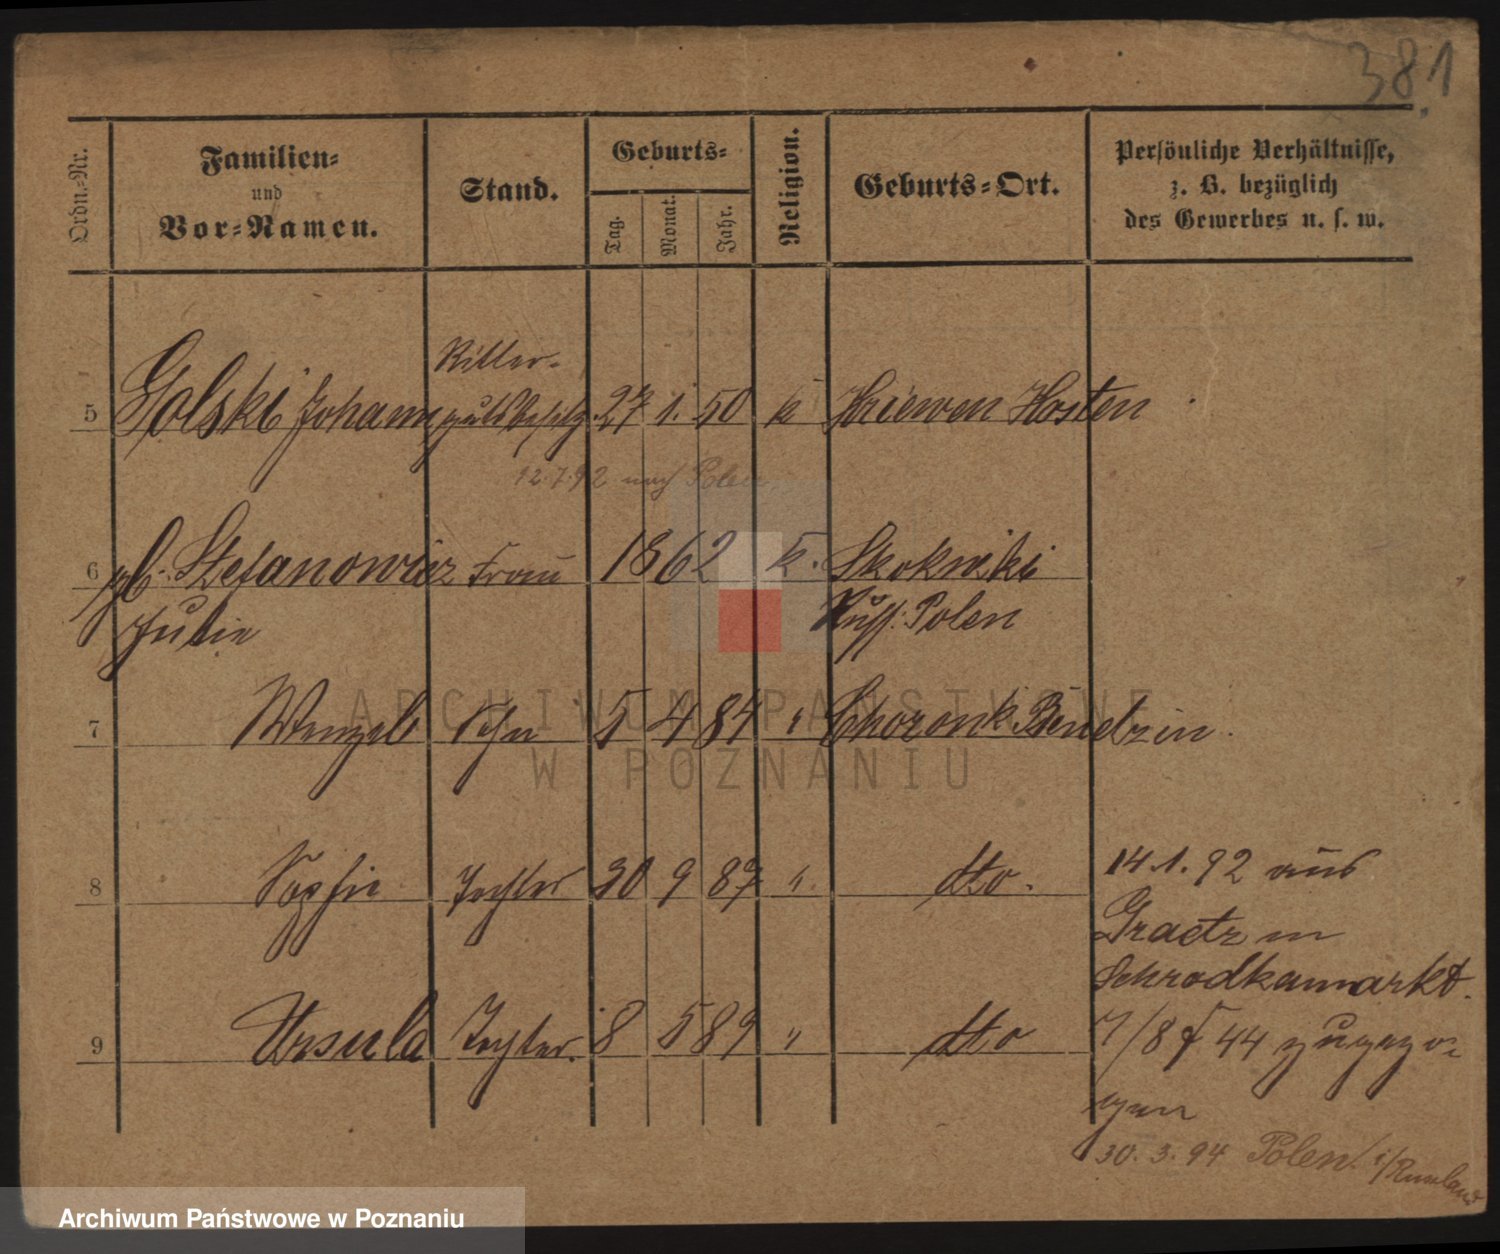 381
Ordn.-Nr.
Familien-
und
Vor-Namen.
Stand.
Geburts-
Tag.
Monat.
Jahr.
Religion.
Geburts-Ort.
Persönliche Verhältnisse,
z. B. bezüglich
des Gewerbes u. s. w.
Ritter-
5 Golski Johann gutsbesitz. 27 1. 50 k Kriewen Kosten
12.7.92 nach Polen
6 gb. Stefanowicz Frau 1862 k.
Julie Russ. Polen
7 Wenzel Sohn 5 4 84 " Bendzin
8 Sophie Tochter 30 9 87 " dto.
14.1.92 aus
Graetz in
Schrodkamarkt
9 Ursula Tochter. 8 5 89 " dto
7/8 44 zugezo-
gen
30.3.94 Polen i/Russland
ARCHIWUM PAŃSTWOWE
W POZNANIU
Archiwum Państwowe w Poznaniu